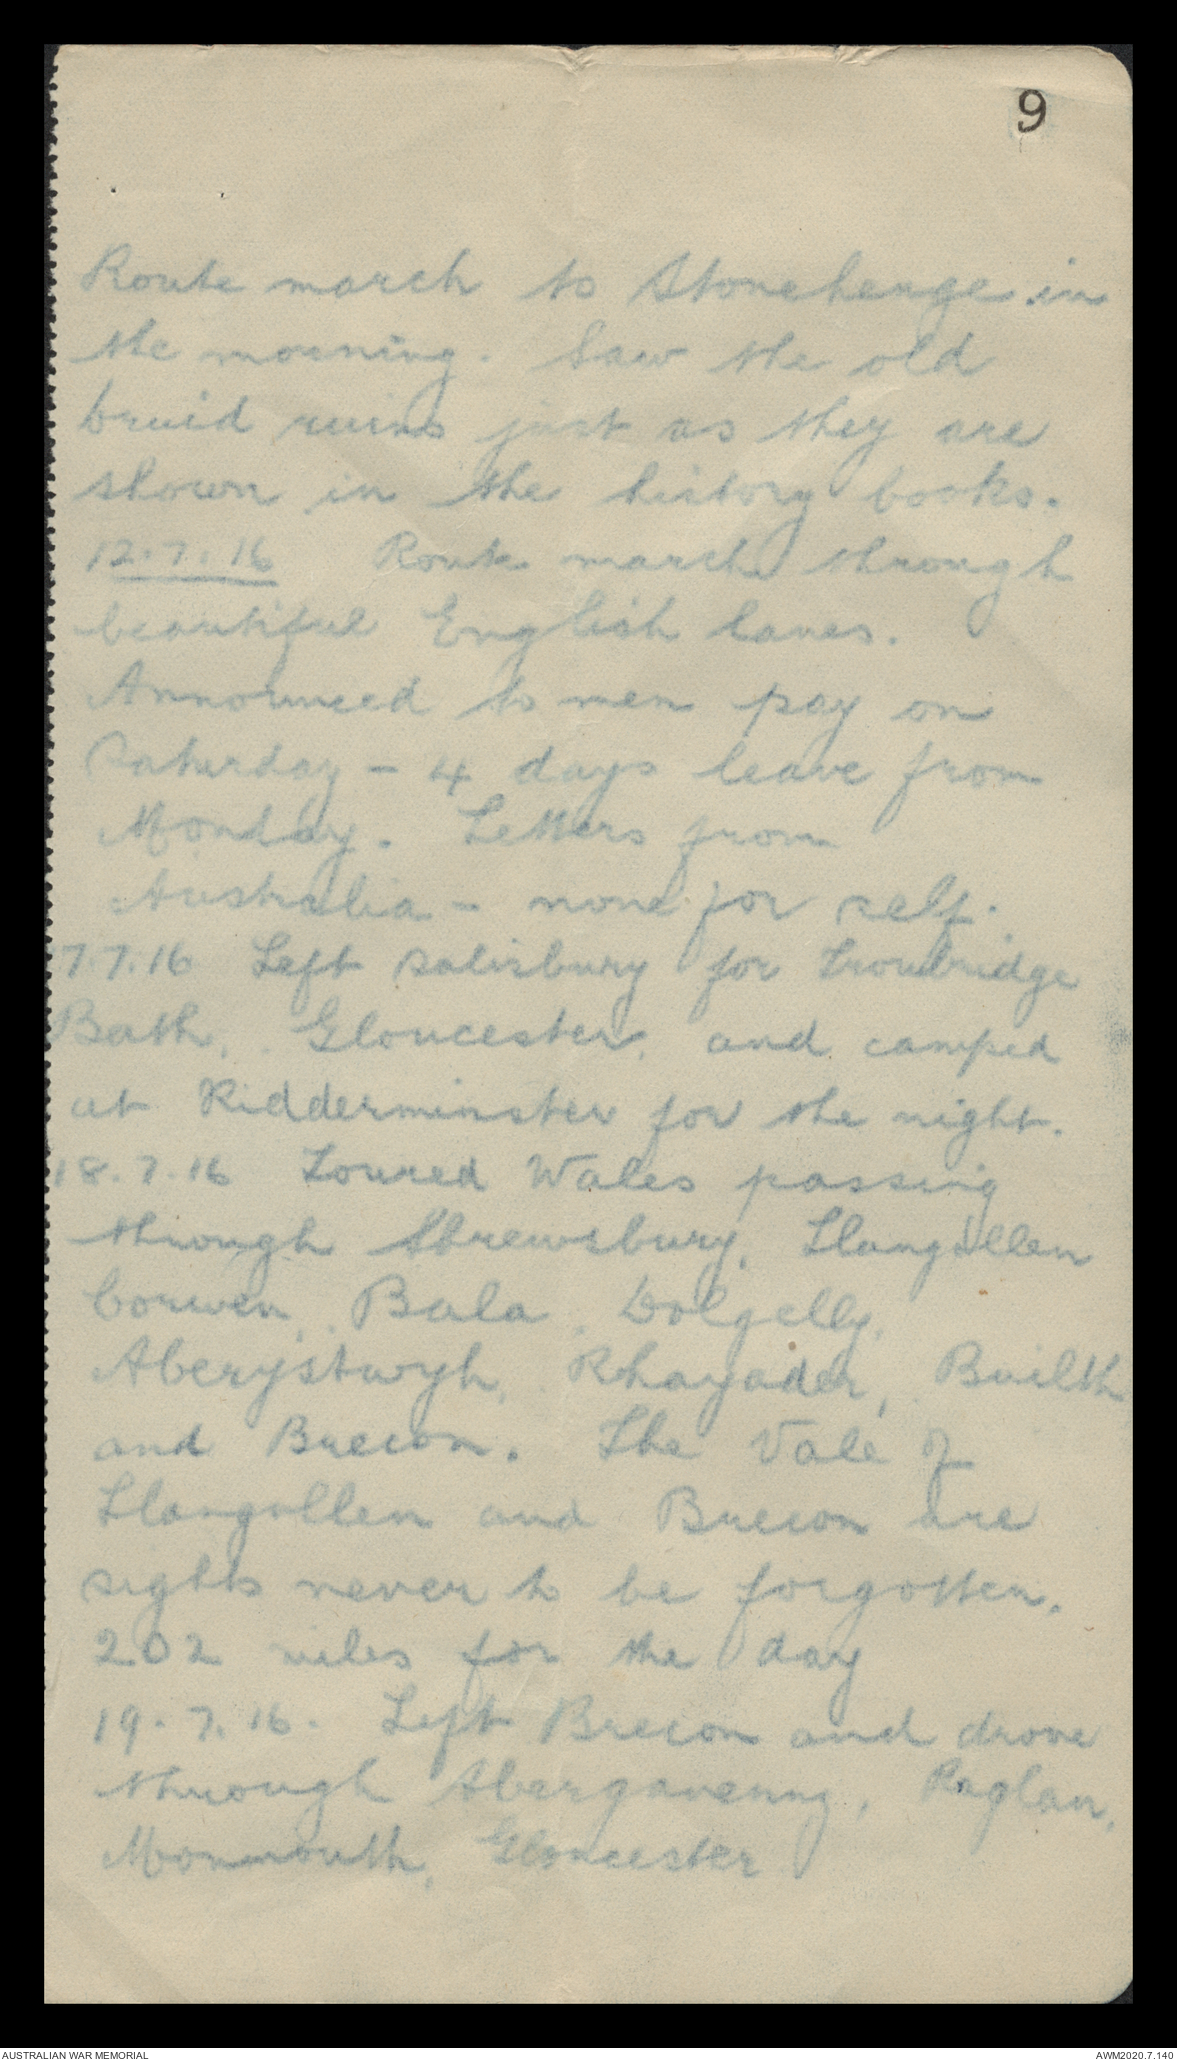 9
Route march to Stonehenge in
the morning. Saw the old
Druid ruins just as they are
shown in the history books.
12.7.16 Route march through
beautiful English lanes.
Announced to men pay on
Saturday - 4 days leave from
Monday. Letters from
Australia - none for self.
17.7.16 Left Salisbury for Trowbridge
Bath, Gloucester, and camped
at Kidderminster for the night.
18.7.16 Toured Wales passing
through Shrewsbury, Llangollen
Corwen, Bala, Dolgelly,
Aberystwyh, Rhayader, Builth
and Brecon. The Vale of
Llangollen and Brecon are
sights never to be forgotten.
202 miles for the day
19.7.16. Left Brecon and drove
through Abergavenny, Raglan,
Monmouth, Gloucester
AUSTRALIAN WAR MEMORIAL
AWM2020.7.140